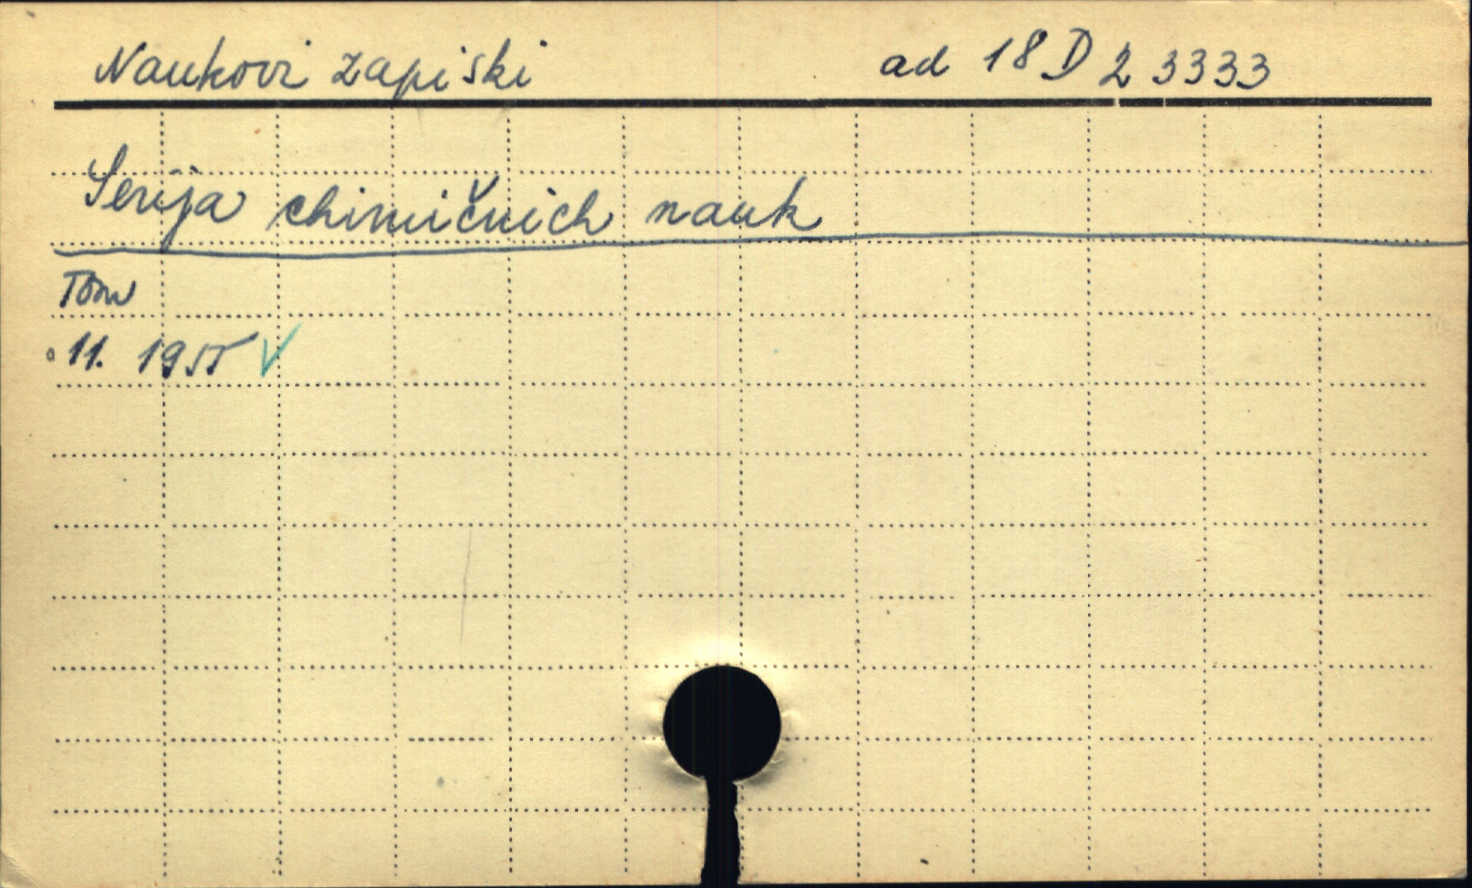 Naukovi zapiski ad 18 D 2 3333
Serija chimičnich nauk
Tom
11. 1955 V